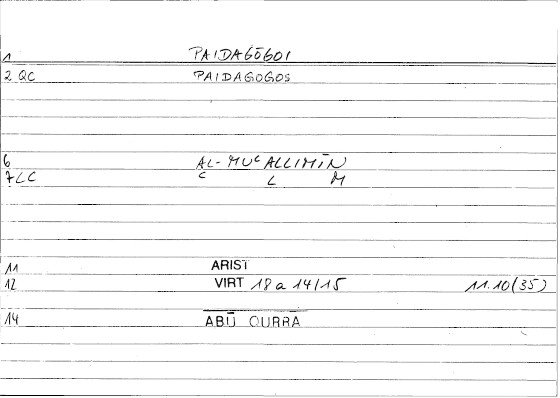 1 PAIDAGŌGOI
2 QC PAIDAGOGOS
6 AL-MUᶜALLIMĪN
7 LC C L M
11 ARIST
12 VIRT 18 a 14/15 11.10(35)
14 ABŪ QURRA